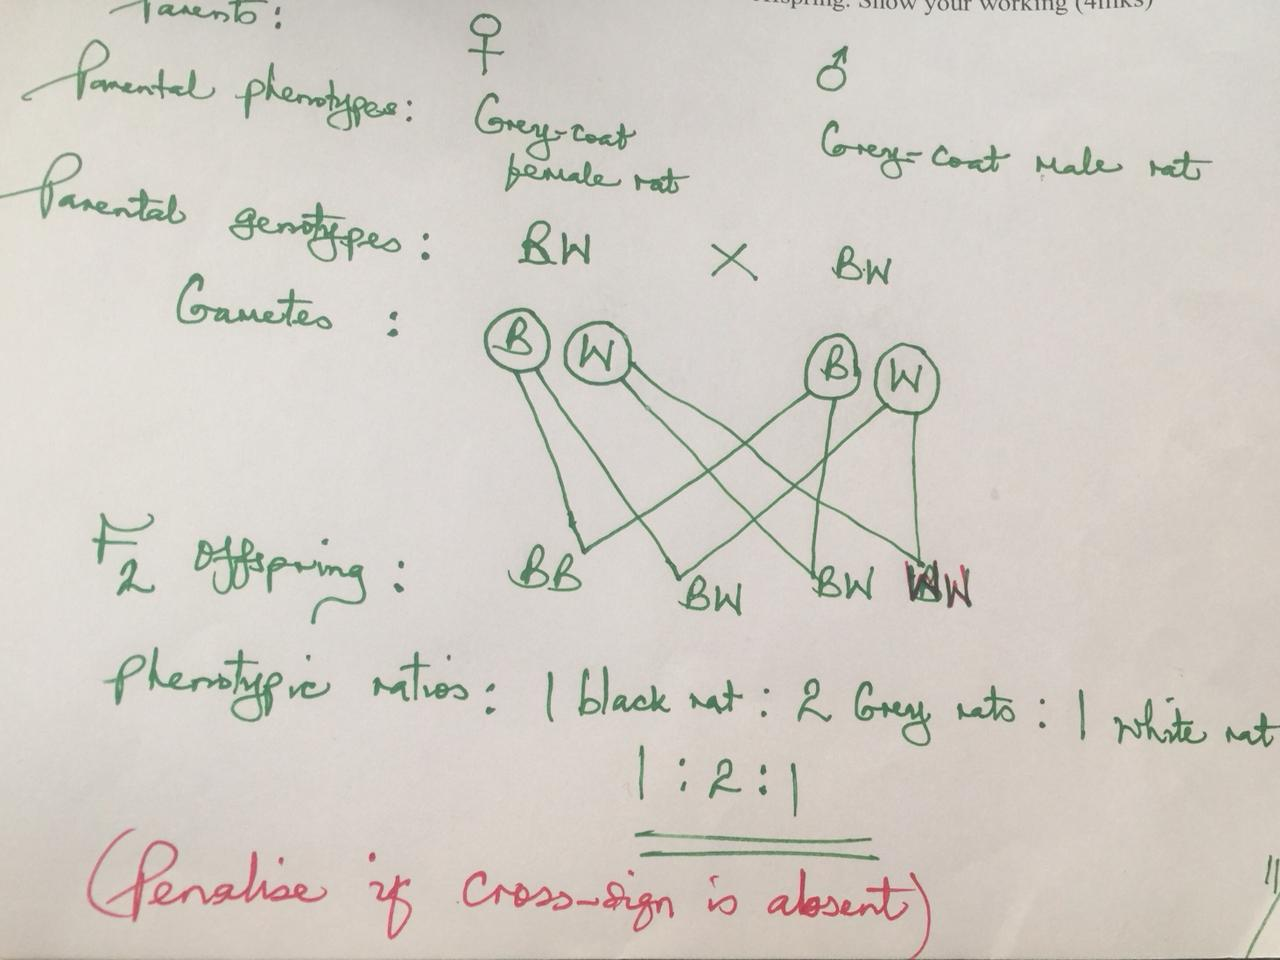 Parents: ♀ ♂
offspring. Show your working (4mks)
Parental phenotypes: Grey-coat female rat Grey-coat male rat
Parental genotypes: BW X BW
Gametes : B W B W
F2 offspring : BB BW BW WW
phenotypic ratios: 1 black rat : 2 Grey rats : 1 white rat
1 : 2 : 1
(Penalise if cross-sign is absent)